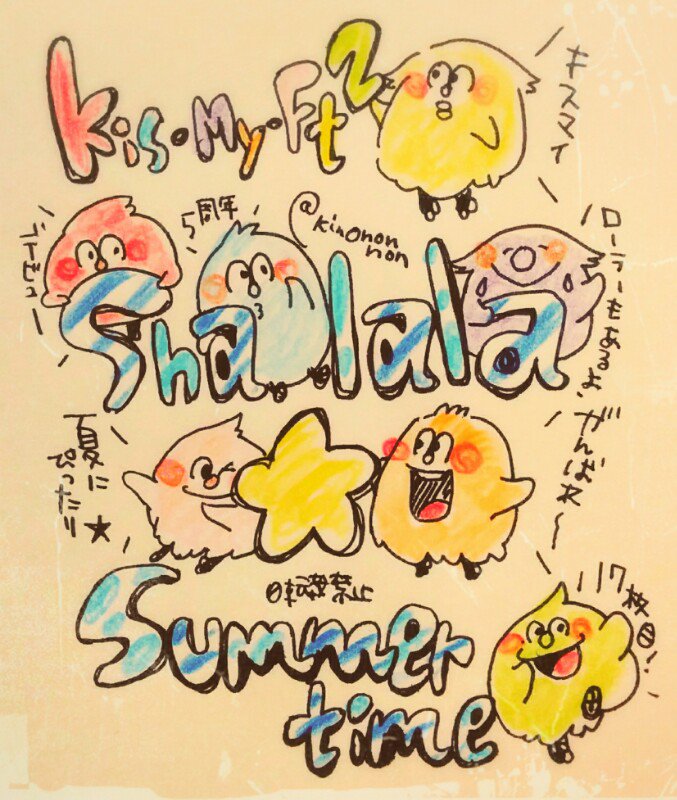 Kis-My-Ft2
キスマイ
デビュー
5周年
@kinononnon
Shalala
ローラーもあるよ、
がんばれ〜
夏に
ぴったり
★
Summer
time
17枚目!